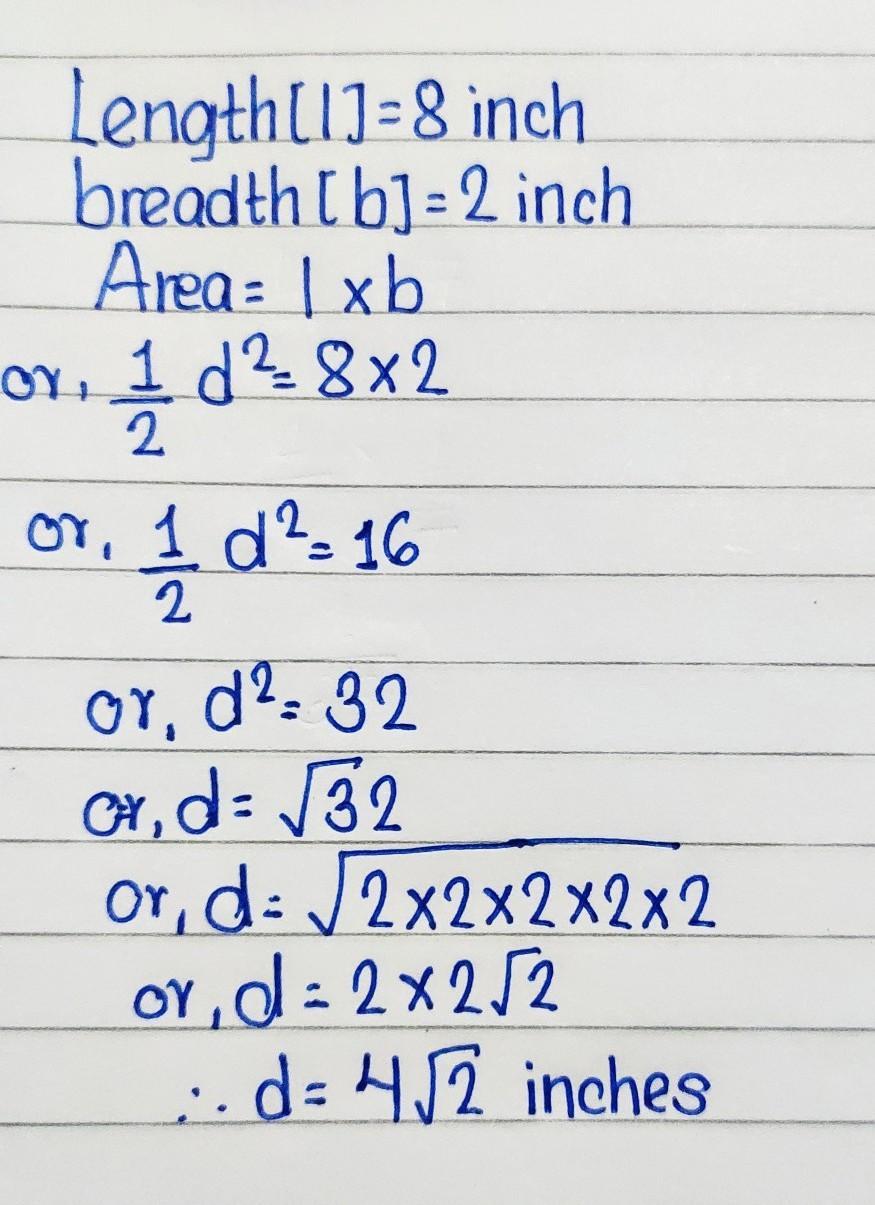 Length[l]=8 inch
breadth[b]=2 inch
Area= l×b
or, 1/2 d²= 8×2
or, 1/2 d²= 16
or, d²= 32
or, d= √32
or, d= √2×2×2×2×2
or, d = 2×2√2
∴ d= 4√2 inches